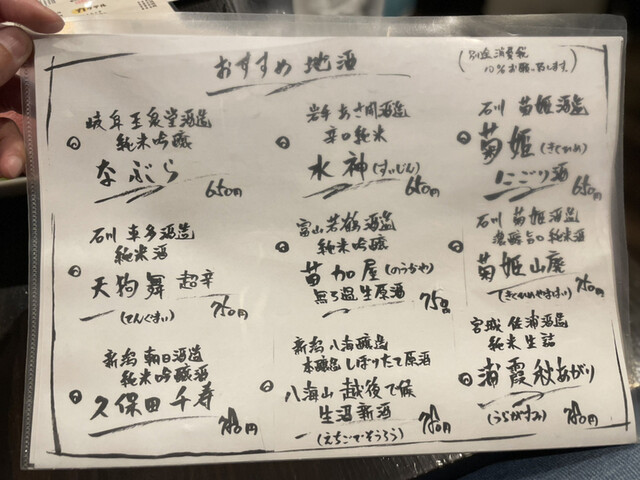 おすすめ 地酒
(別途消費税
10%お願い致します)
岐阜 玉泉堂酒造
純米吟醸
なぶら
650円
岩手 あさ開酒造
辛口純米
水神(すいじん)
650円
石川 菊姫酒造
菊姫(きくひめ)
にごり酒
650円
石川 車多酒造
純米酒
天狗舞 超辛
(てんぐまい)
750円
富山若鶴酒造
純米吟醸
苗加屋(のうかや)
無ろ過生原酒
750円
石川 菊姫酒造
濃醇旨口純米酒
菊姫山廃
(きくひめやまはい)
750円
新潟 朝日酒造
純米吟醸酒
久保田千寿
780円
新潟 八海醸造
本醸造しぼりたて原酒
八海山 越後で候
生沼新酒
(えちごでそうろう)
780円
宮城 佐浦酒造
純米生詰
浦霞秋あがり
(うらがすみ)
780円